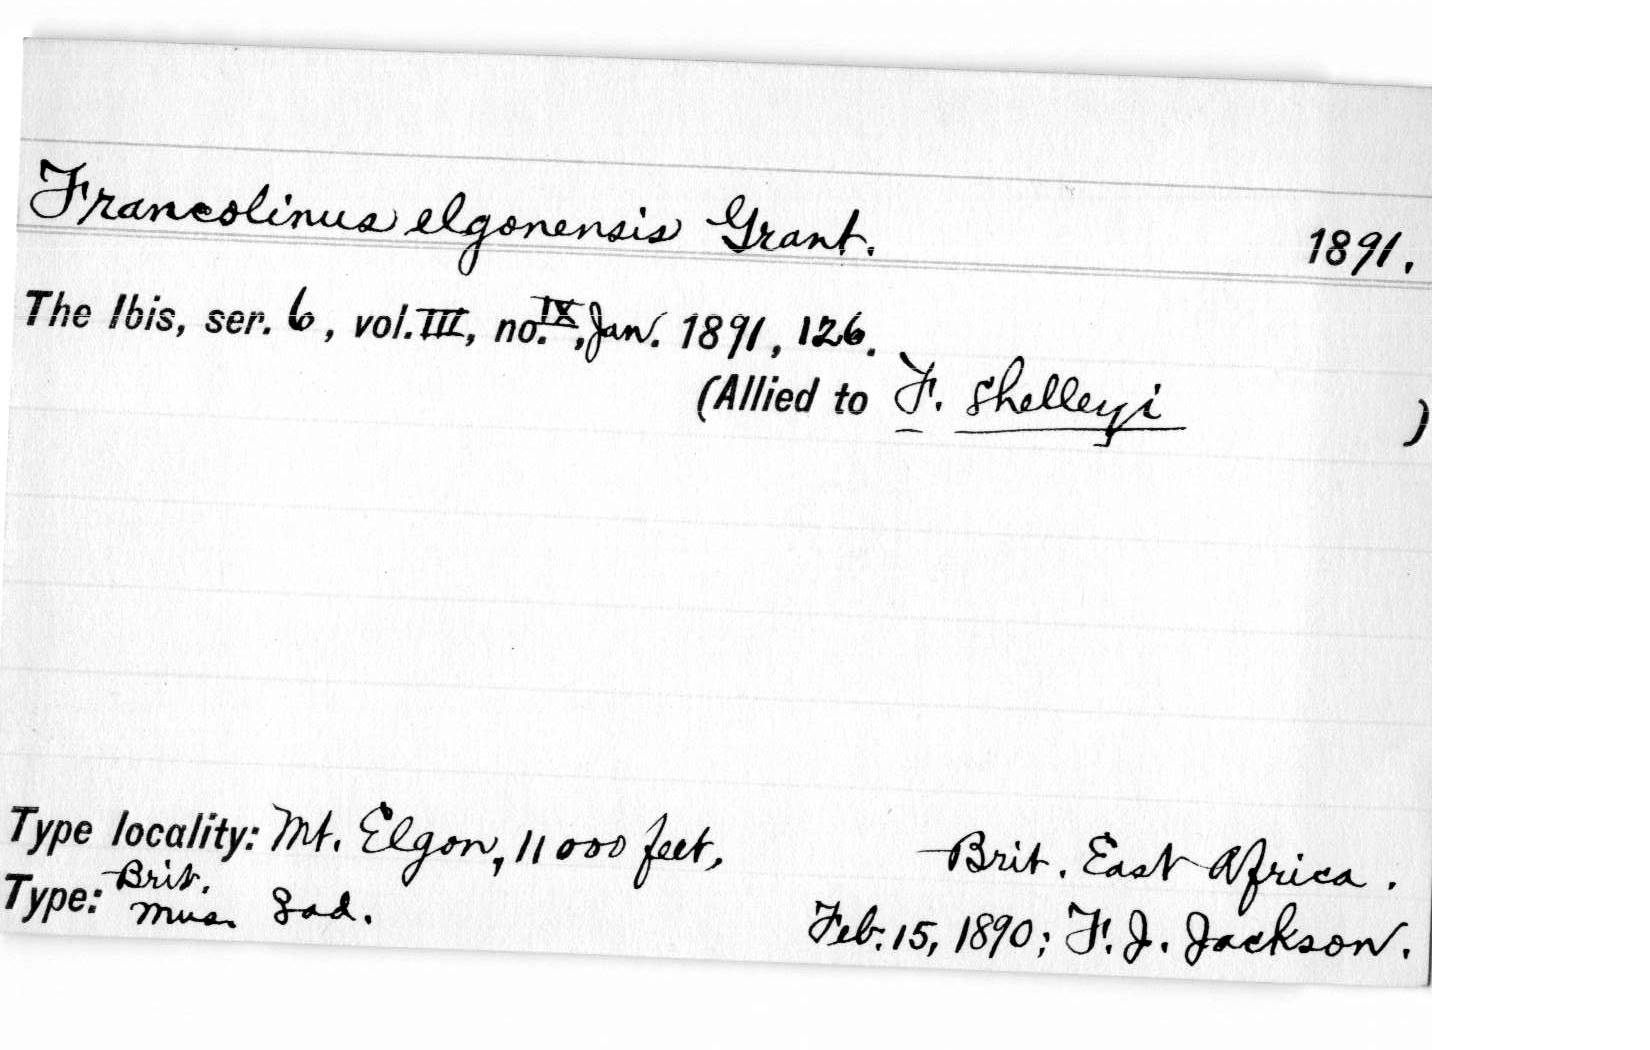 Francolinus elgonensis Grant. 1891.
The Ibis, ser. 6, vol. III, no. IX, Jan. 1891, 126.
(Allied to F. Shelleyi )
Type locality: Mt. Elgon, 11000 feet, Brit. East Africa.
Type: Brit. Mus. ad. Feb. 15, 1890; F. J. Jackson.